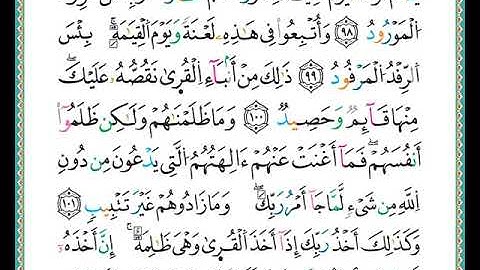 ٱلْمَوْرُودُ ٩٨ وَأُتْبِعُوا۟ فِى هَـٰذِهِۦ لَعْنَةً وَيَوْمَ ٱلْقِيَـٰمَةِ ۚ بِئْسَ
ٱلرِّفْدُ ٱلْمَرْفُودُ ٩٩ ذَٰلِكَ مِنْ أَنۢبَآءِ ٱلْقُرَىٰ نَقُصُّهُۥ عَلَيْكَ ۖ
مِنْهَا قَآئِمٌ وَحَصِيدٌ ١٠٠ وَمَا ظَلَمْنَـٰهُمْ وَلَـٰكِن ظَلَمُوٓا۟
أَنفُسَهُمْ ۖ فَمَآ أَغْنَتْ عَنْهُمْ ءَالِهَتُهُمُ ٱلَّتِى يَدْعُونَ مِن دُونِ
ٱللَّهِ مِن شَىْءٍ لَّمَّا جَآءَ أَمْرُ رَبِّكَ ۖ وَمَا زَادُوهُمْ غَيْرَ تَتْبِيبٍ ١٠١
وَكَذَٰلِكَ أَخْذُ رَبِّكَ إِذَآ أَخَذَ ٱلْقُرَىٰ وَهِىَ ظَـٰلِمَةٌ ۚ إِنَّ أَخْذَهُۥٓ